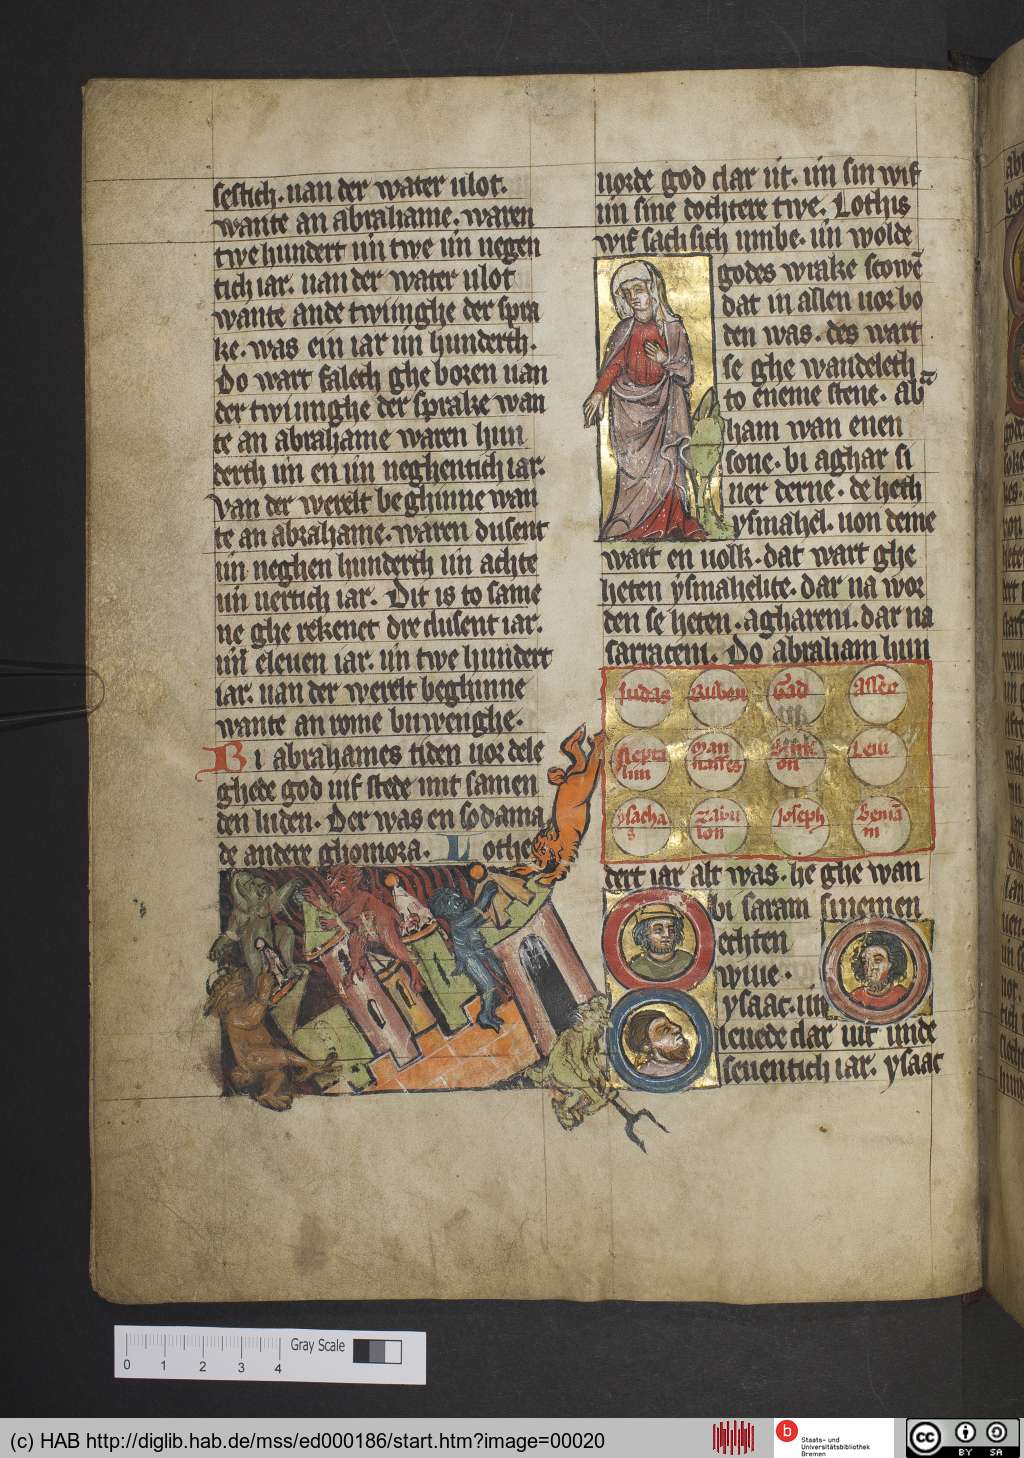 sestich. uan der water ulot.
wante an abrahame. waren
twe hundert un twe un negen
tich iar. uan der water ulot
wante ande twiinghe der spra
ke. was ein iar un hunderth.
Do wart falech ghe boren uan
der twiinghe der sprake wan
te an abrahame waren hun
derth un en un neghentich iar.
Van der werelt beghinne wan
te an abrahame. waren dusent
un neghen hunderth un achte
un uertich iar. Dit is to same
ne ghe rekenet dre dusent iar.
un eleuen iar. un twe hundert
iar. uan der werelt beghinne
wante an rome buwenghe.
Bi abrahames tiden uor dele
ghede god uif stede mit samen
den luden. Der was en sodama
de andere ghomora. Lothe
uorde god dar ut. un sin wif
un sine dochtere twe. Lothis
wif sach sich umbe. un wolde
godes wrake scowē
dat in allen uor bo
den was. des wart
se ghe wandeleth
to eneme stene. Ab
ham wan enen
sone. bi aghar si
ner derne. de heth
ysmahel. uon deme
wart en uolk. dat wart ghe
heten ysmahelite. dar na wor
den se heten. aghareni. dar na
sarraceni. Do abraham hun
Judas Ruben Gad Asser
Nepta
lim
Man
nasses
Sime
on
Leui
ysacha
s
zabu
lon
Joseph
Beniā
in
dert iar alt was. he ghe wan
bi saram sinemen
echten
wiue.
ysaac. un
leuede dar uir unde
seuentich iar. ysaac
0 1 2 3 4
Gray Scale
(c) HAB http://diglib.hab.de/mss/ed000186/start.htm?image=00020
b
Staats- und
Universitätsbibliothek
Bremen
cc
BY SA